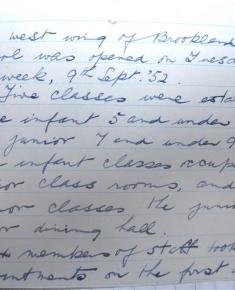 west wing of Brookland
ol was opened on Tuesd
week, 9th Sept. '52.
Five classes were esta
e infant 5 and under
junior 7 and under 9
infant classes occup
or class rooms, and
or classes the juni
r dining hall.
members of staff took
intments on the first